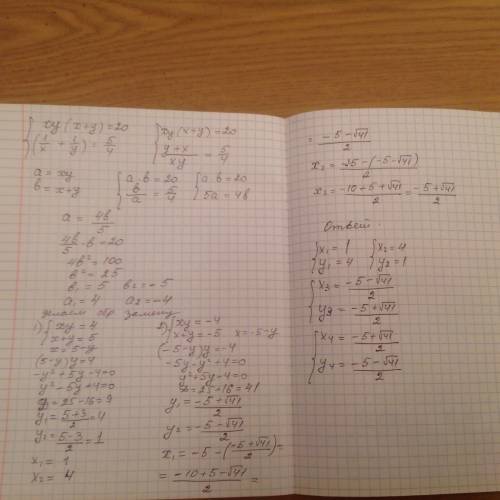 { xy (x+y) = 20
{ (1/x + 1/y) = 5/4
{ xy (x+y) = 20
{ (y+x)/xy = 5/4
a = xy
b = x+y
{ a·b = 20
{ b/a = 5/4
{ a·b = 20
{ 5a = 4b
a = 4b/5
4b/5 · b = 20
4b² = 100
b² = 25
b₁ = 5 b₂ = -5
a₁ = 4 a₂ = -4
делаем обр замену
1) { xy = 4
{ x+y = 5
x = 5-y
(5-y) y = 4
-y² + 5y - 4 = 0
y² - 5y + 4 = 0
= 25 - 16 = 9
y₁ = (5+3)/2 = 4
y₂ = (5-3)/2 = 1
x₁ = 1
x₂ = 4
2) { xy = -4
{ x+y = -5 x = -5-y
(-5-y) y = -4
-5y - y² + 4 = 0
y² + 5y - 4 = 0
= 25 + 16 = 41
y₁ = (-5+√41)/2
y₂ = (-5-√41)/2
x₁ = -5 - ((-5+√41)/2) =
= (-10+5-√41)/2 =
= (-5-√41)/2
x₂ = (-5-√41)
x₂ = (-10+5+√41)/2 = (-5+√41)/2
Ответ:
{ x₁ = 1
{ y₁ = 4
{ x₂ = 4
{ y₂ = 1
{ x₃ = (-5-√41)/2
{ y₃ = (-5+√41)/2
{ x₄ = (-5+√41)/2
{ y₄ = (-5-√41)/2